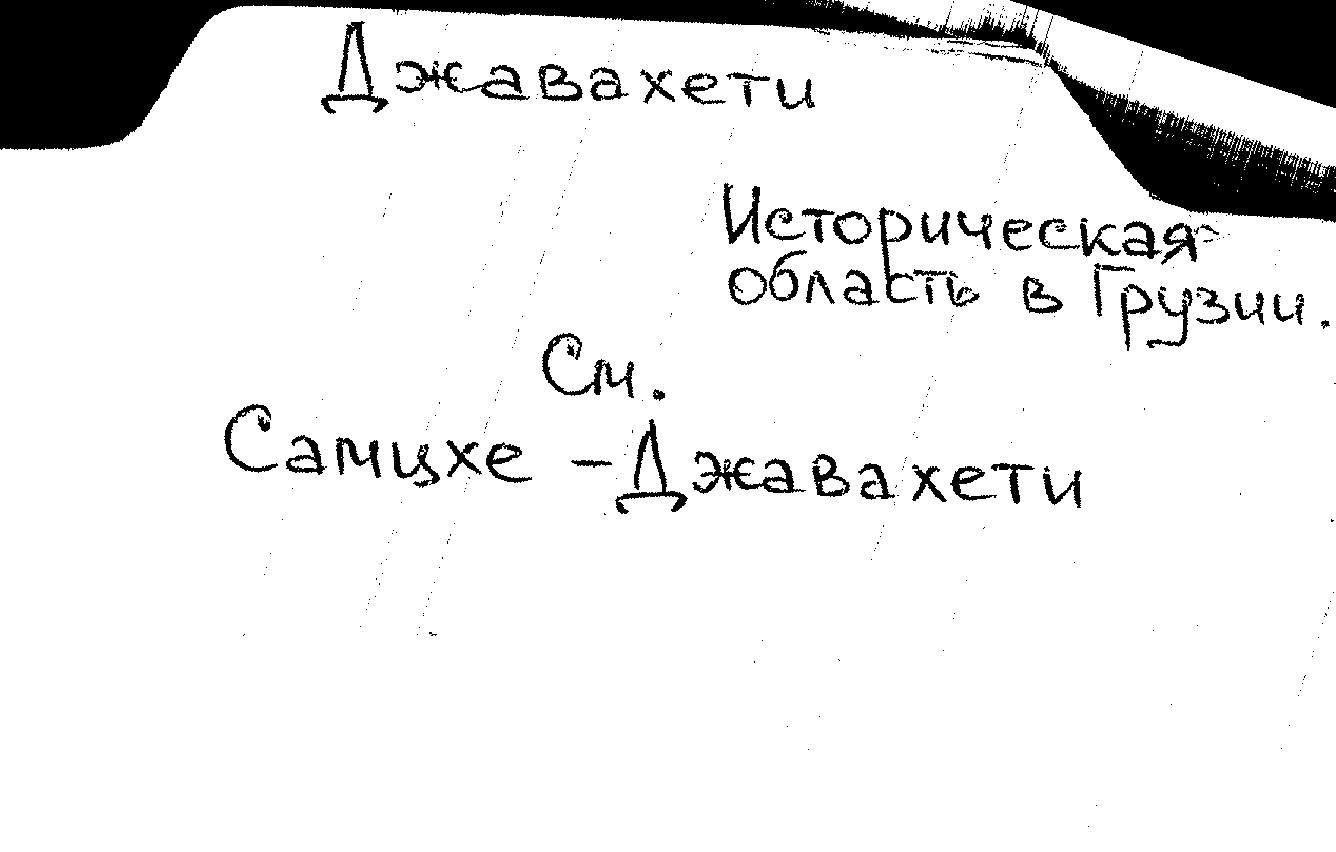 Джавахети
Историческая
область в Грузии.
См.
Самцхе - Джавахети